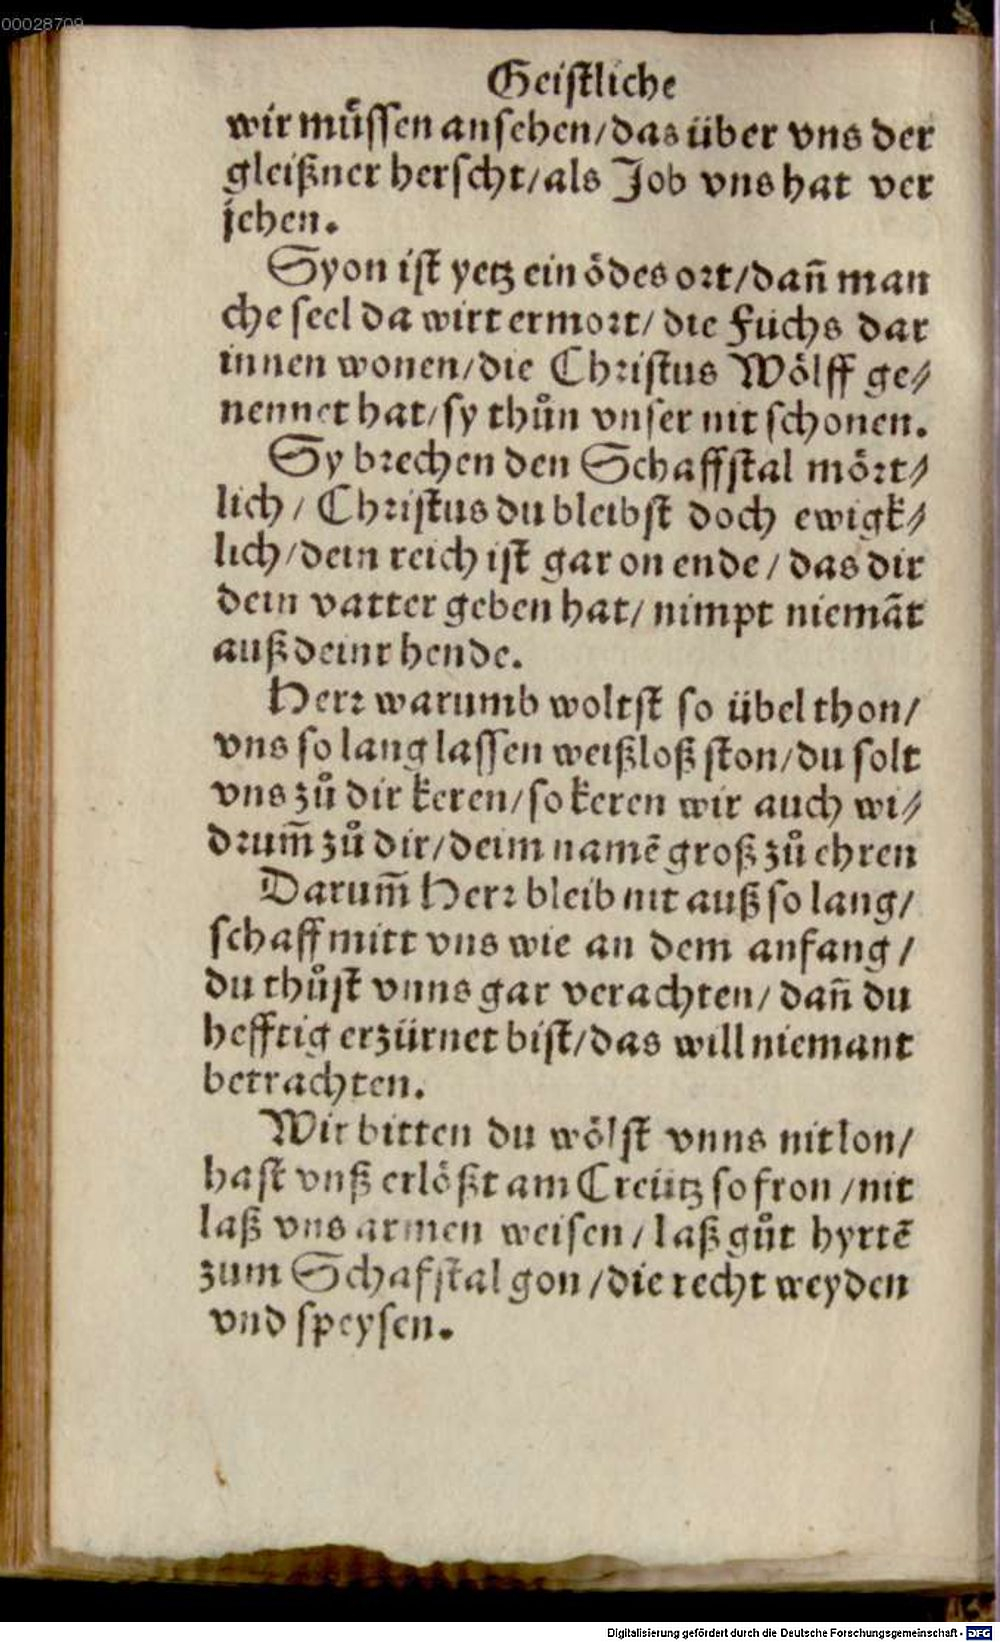 00028709
Geistliche
wir müssen ansehen/das über vns der
gleißner herscht/als Job vns hat ver
jehen.
Syon ist yetz ein ödes ort/dañ man
che seel da wirt ermort/die Füchs dar
innen wonen/die Christus Wölff ge⸗
nennet hat/sy thůn vnser nit schonen.
Sy brechen den Schaffstal mört⸗
lich/Christus du bleibst doch ewigk⸗
lich/dein reich ist gar on ende/das dir
dein vatter geben hat/nimpt niemãt
auß deinr hende.
Herr warumb woltst so übel thon/
vns so lang lassen weißloß ston/du solt
vns zů dir keren/so keren wir auch wi⸗
drum̃ zů dir/deim namẽ groß zů ehren
Darum̃ Herr bleib nit auß so lang/
schaff mitt vns wie an dem anfang/
du thůst vnns gar verachten/dañ du
hefftig erzürnet bist/das will niemant
betrachten.
Wir bitten du wölst vnns nit lon/
hast vnß erlößt am Creütz so fron/nit
laß vns armen weisen/laß gůt hyrtẽ
zum Schafstal gon/die recht weyden
vnd speysen.
Digitalisierung gefördert durch die Deutsche Forschungsgemeinschaft - DFG